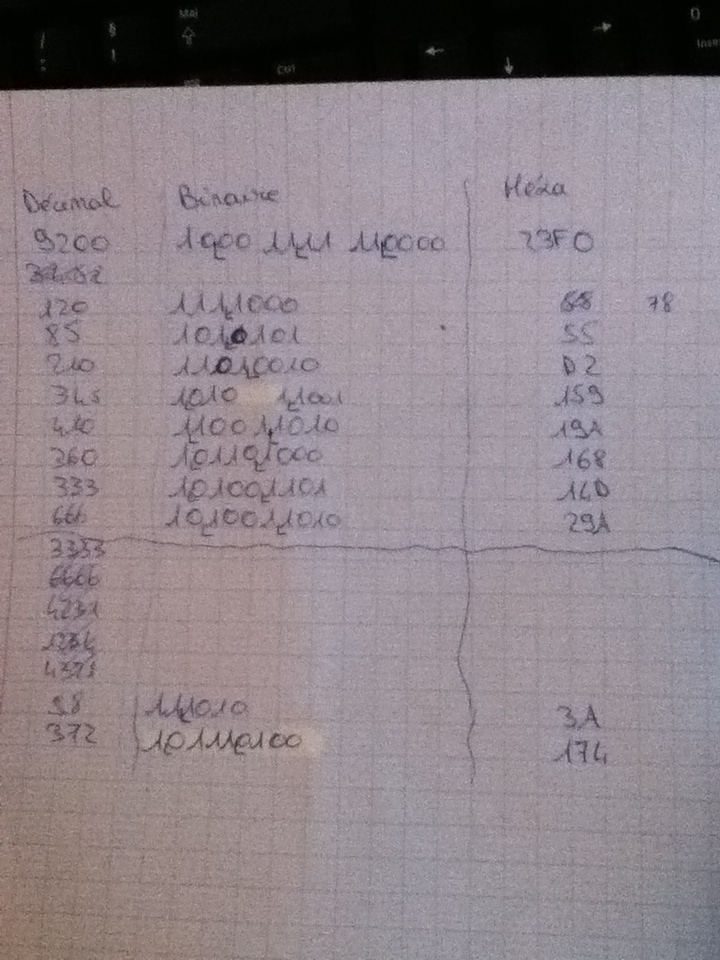 Décimal Binaire Héxa
9200 1000 1111 110000 23F0
120 1111000 68 78
85 1010101 55
210 11010010 D2
345 1010 11001 159
410 110011010 19A
360 101101000 168
333 101001101 14D
666 1010011010 29A
3333
6666
4231
1234
4371
58 111010 3A
372 101110100 174